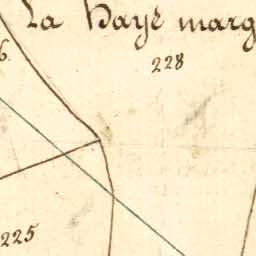 La Haye marg
6.
228
225